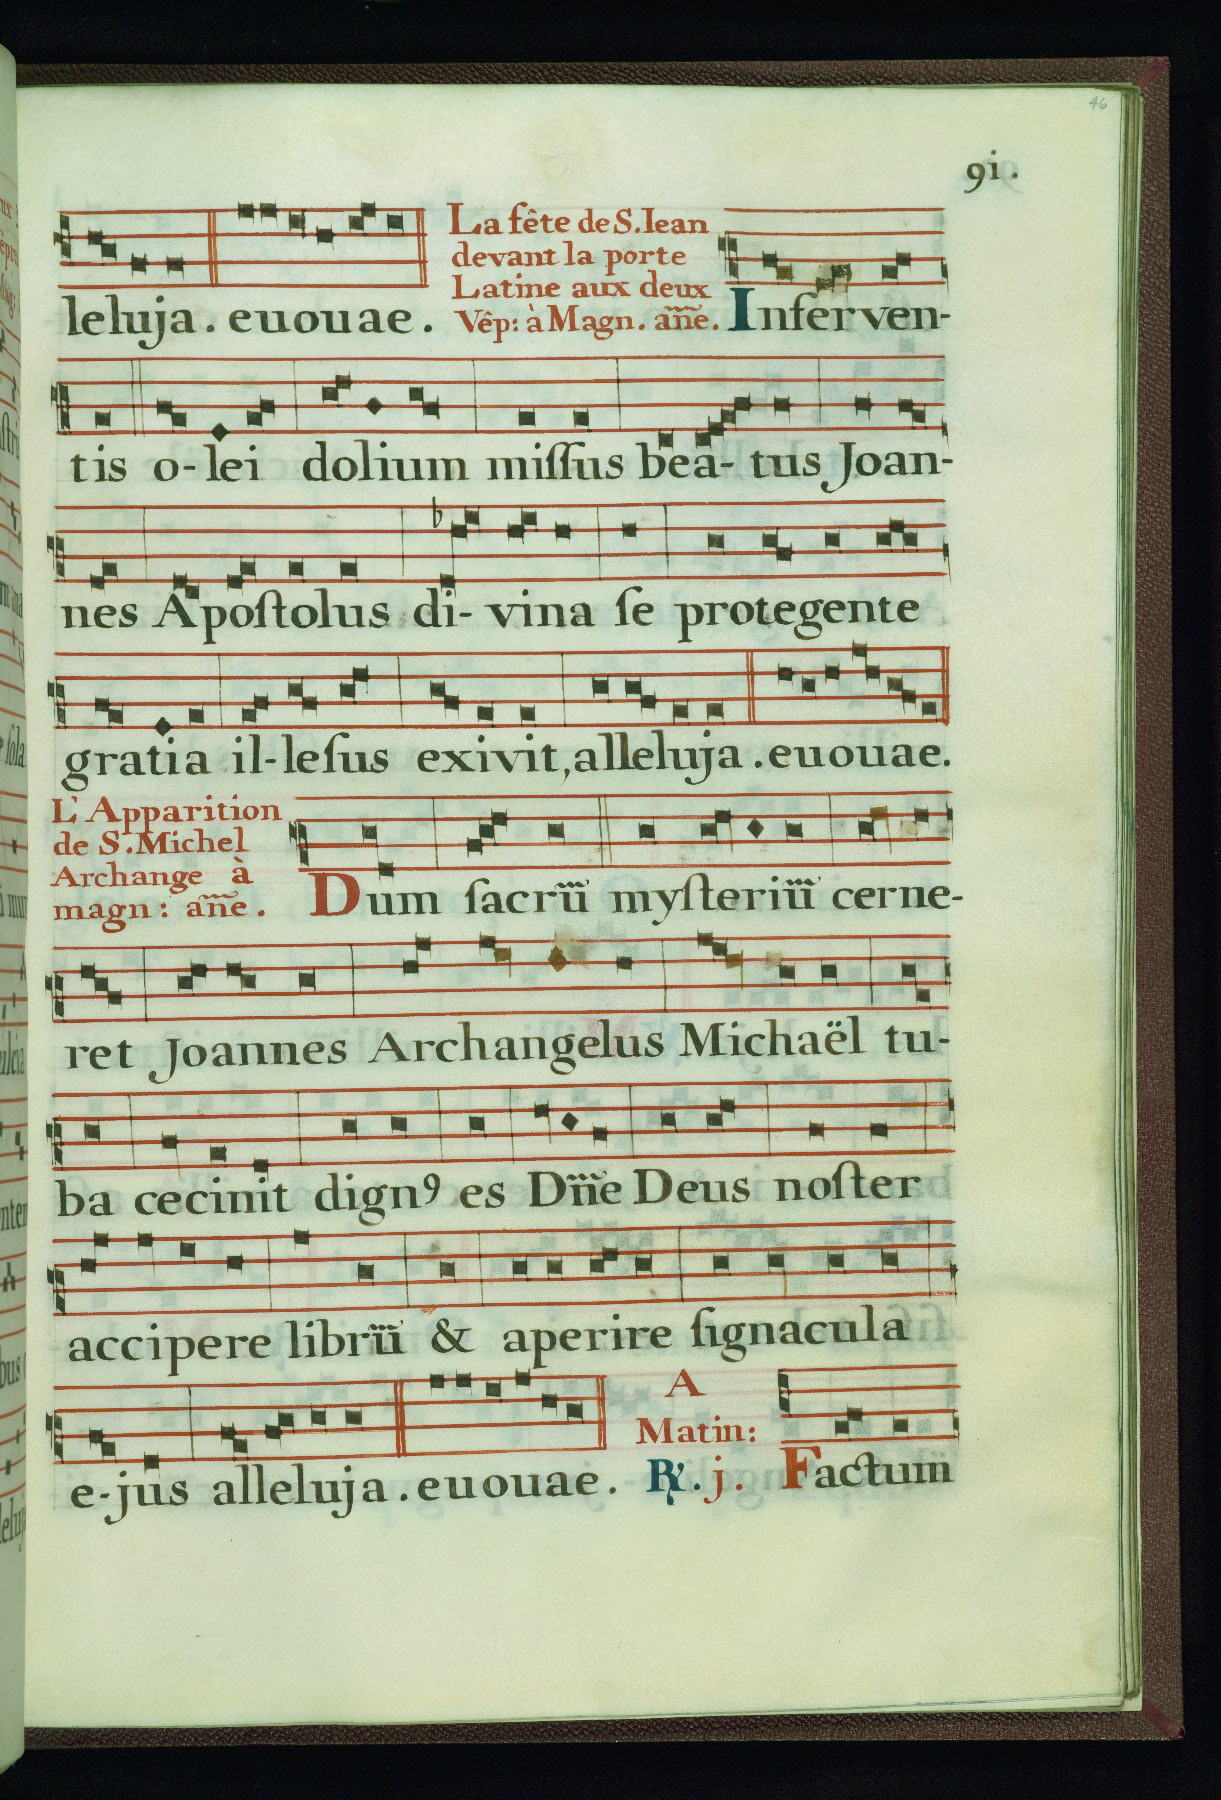 46
91.
leluja. euouae.
La fête de S. Iean
devant la porte
Latine aux deux
Vêp: à Magn. añe.
Inferven-
tis o-lei dolium miſſus bea-tus Joan-
nes Apoſtolus di-vina ſe protegente
gratia il-leſus exivit, alleluja. euouae.
L'Apparition
de S. Michel
Archange à
magn: añe.
Dum ſacrũ myſteriũ cerne-
ret Joannes Archangelus Michaël tu-
ba cecinit dignꝰ es Dñe Deus noſter
accipere librũ & aperire ſignacula
e-jus alleluja. euouae.
A
Matin:
℟. j. Factum